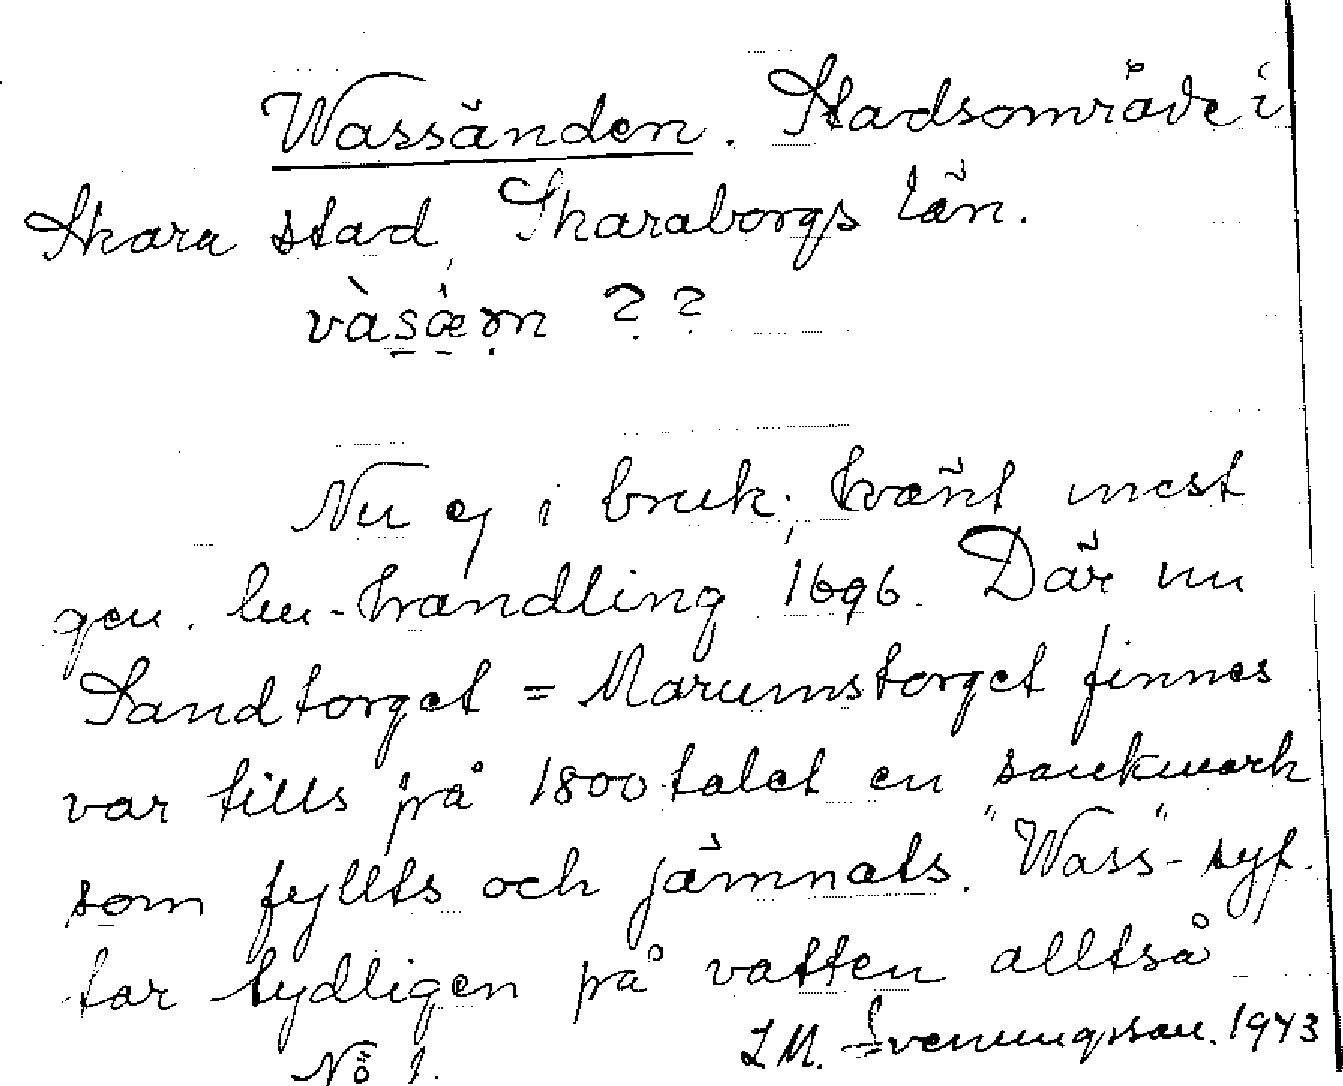 Wassänden. Stadsområde i
Skara stad, Skaraborgs län.
vàsæ̀rn ??
Nu ej i bruk; känt mest
gen. en handling 1696. Där nu
Sandtorget = Marumstorget finnes
var tills på 1800 talet en sankmark
som fyllts och jämnats. "Wass"- syf.
tar tydligen på vatten alltså
Nö 1. L M. Svenungsson. 1943